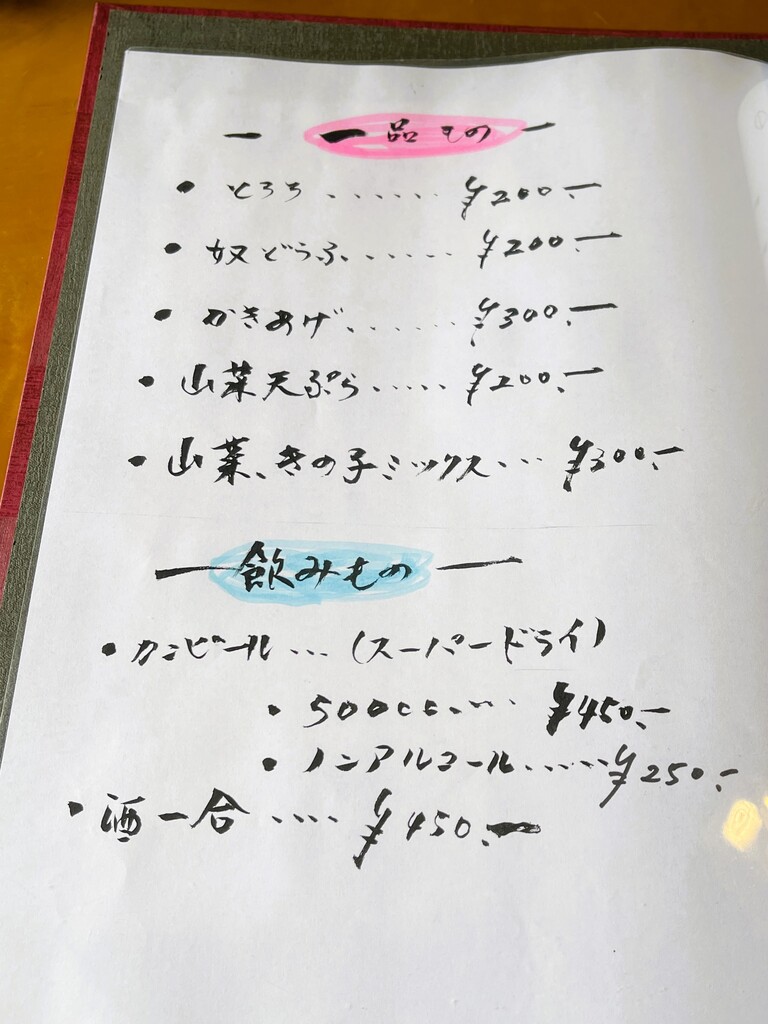 ー 一品もの ー
・とろろ ...... ¥200.ー
・奴どうふ ...... ¥200.ー
・かきあげ ....... ¥300.ー
・山菜天ぷら ..... ¥200.ー
・山菜、きの子ミックス ... ¥300.ー
ー 飲みもの ー
・カンビール ... (スーパードライ)
・500cc ..... ¥450.ー
・ノンアルコール ...... ¥250.ー
・酒一合 .... ¥450.ー